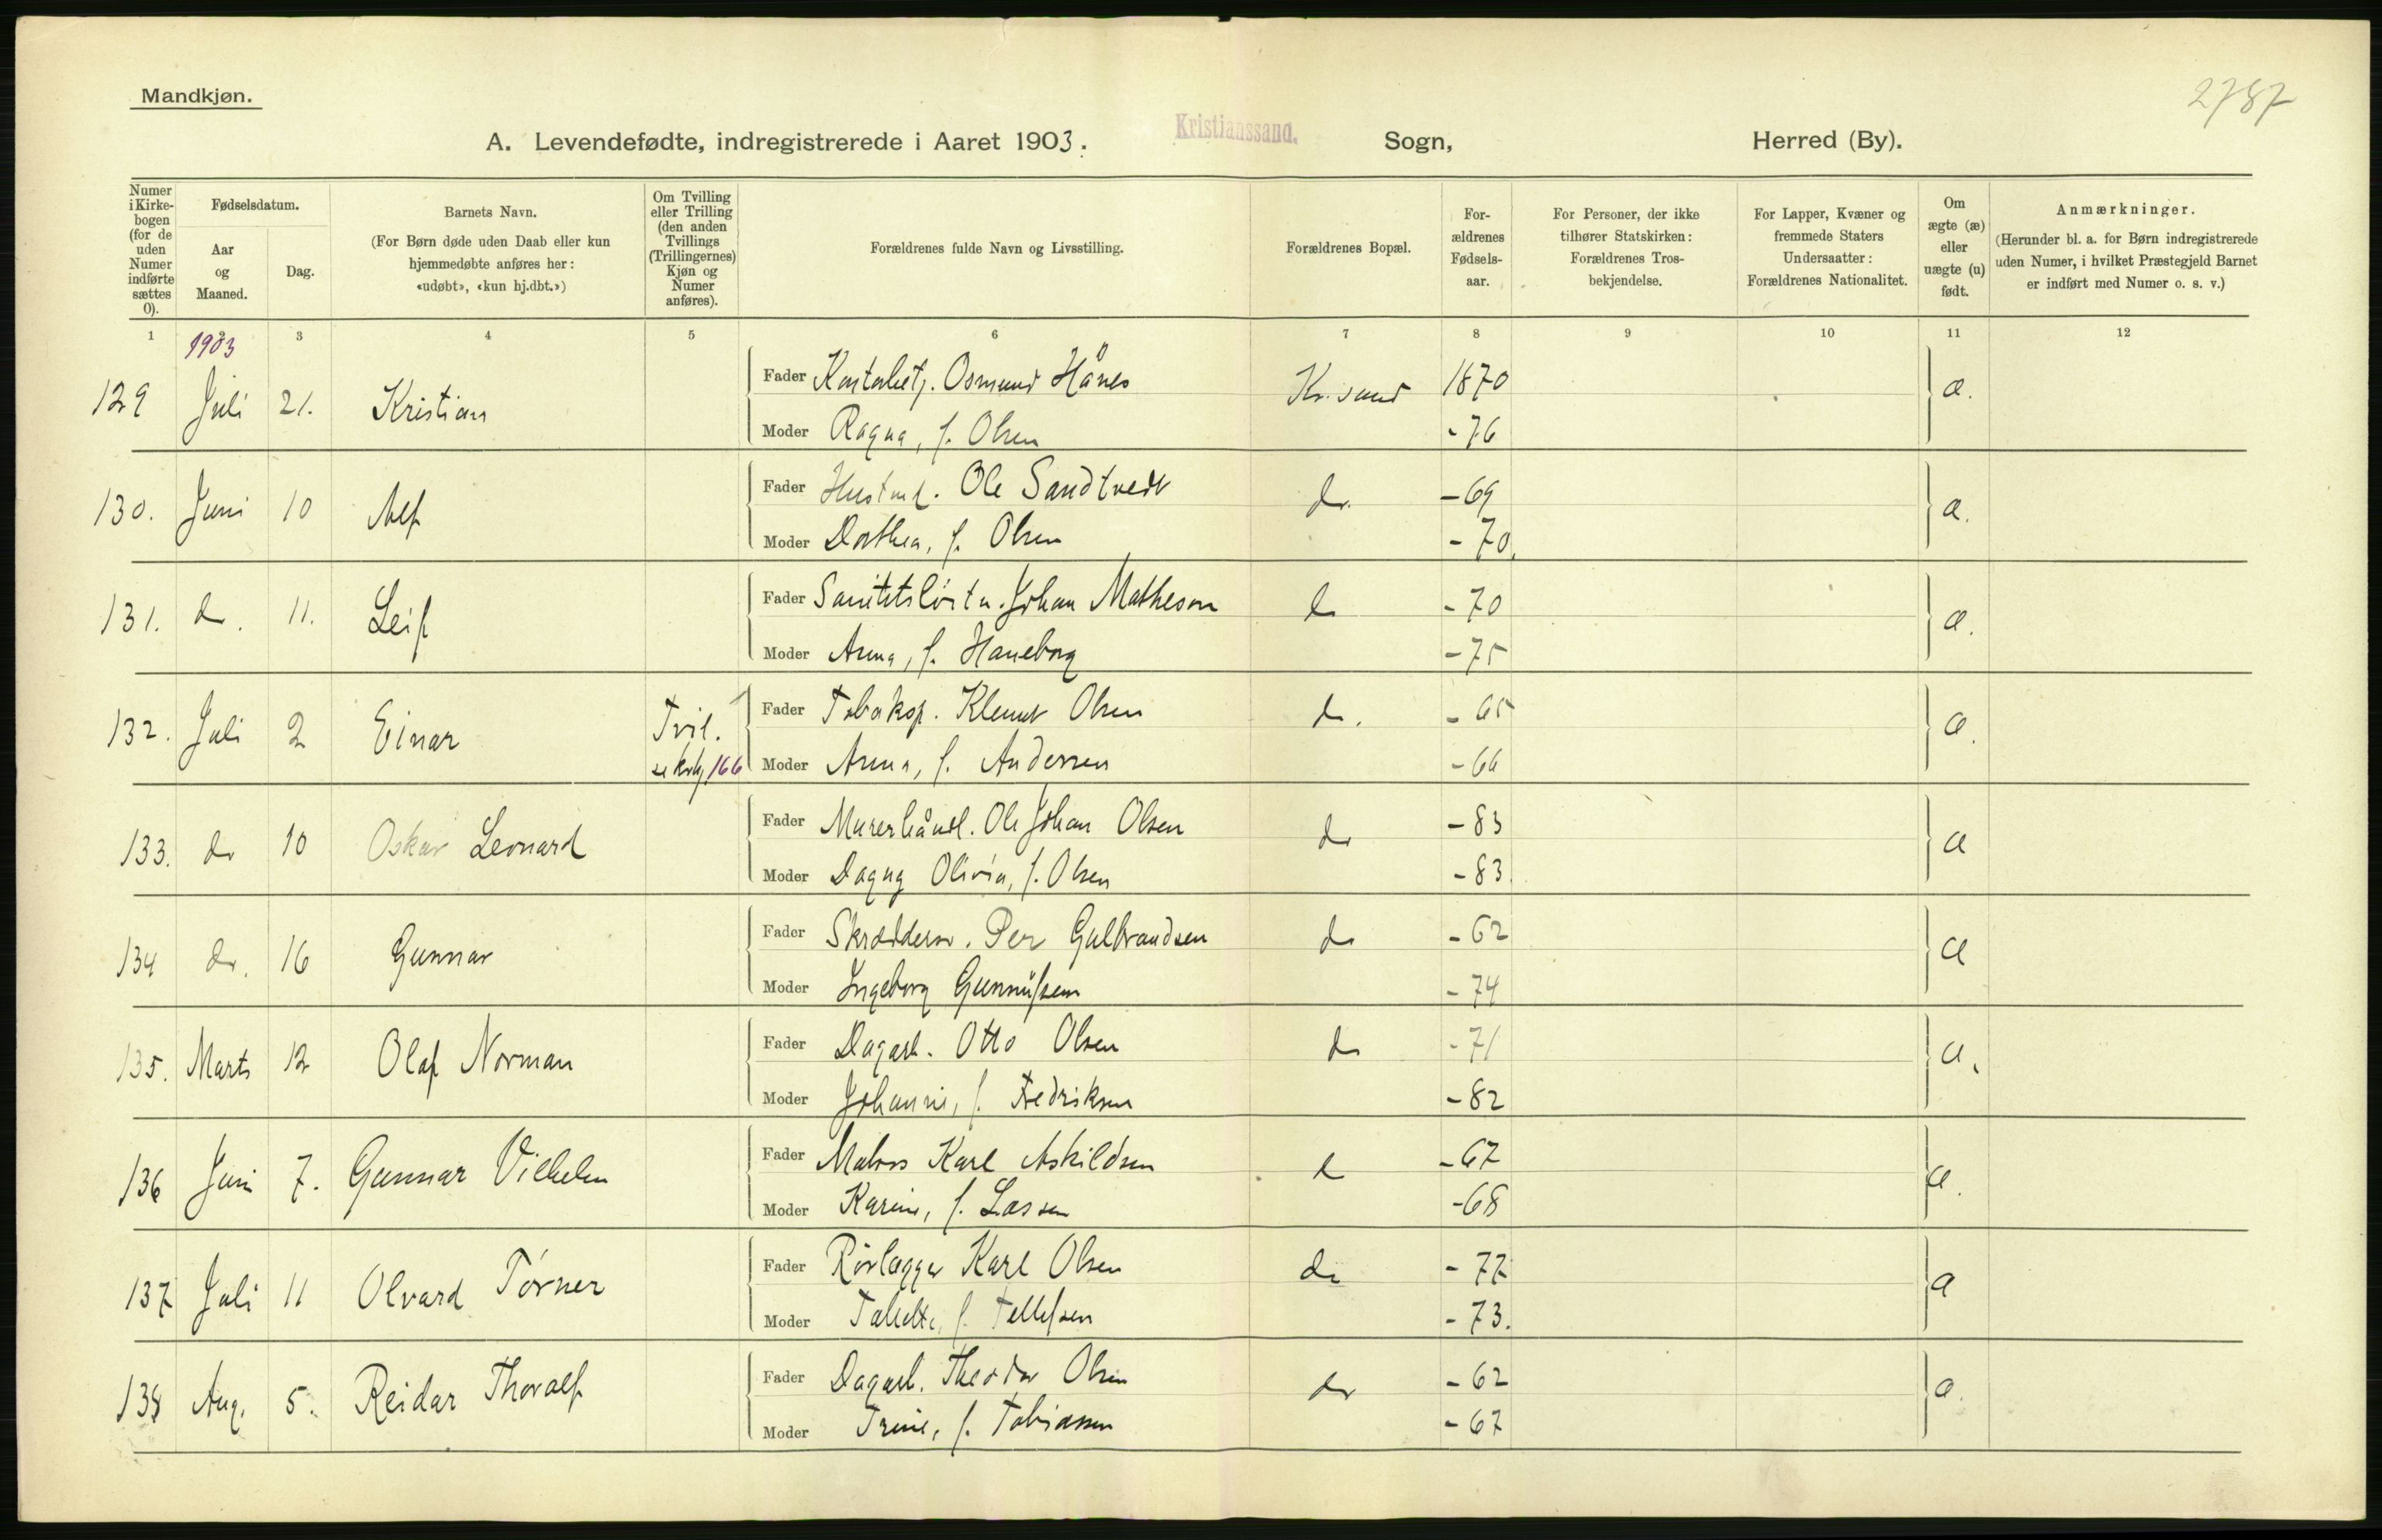 Mandkjøn.
2787
A. Levendefødte, indregistrerede i Aaret 1903. Kristianssand. Sogn, Herred (By).
Numer i Kirkebogen (for de uden Numer indførte sættes 0).
Fødselsdatum.
Aar og Maaned.
Dag.
Barnets Navn.
(For Børn døde uden Daab eller kun hjemmedøbte anføres her: «udøbt», «kun hj.dbt.»)
Om Tvilling eller Trilling (den anden Tvillings (Trillingernes) Kjøn og Numer anføres).
Forældrenes fulde Navn og Livsstilling.
Forældrenes Bopæl.
Forældrenes Fødselsaar.
For Personer, der ikke tilhører Statskirken: Forældrenes Trosbekjendelse.
For Lapper, Kvæner og fremmede Staters Undersaatter: Forældrenes Nationalitet.
Om ægte (æ) eller uægte (u) født.
Anmærkninger.
(Herunder bl. a. for Børn indregistrerede uden Numer, i hvilket Præstegjeld Barnet er indført med Numer o. s. v.)
1 3 4 5 6 7 8 9 10 11 12
1903
129 Juli 21. Kristian Fader Osmund Hånes Kr.sand 1870 æ.
Moder Ragna, f. Olsen - 76
130. Juni 10 Alf Fader Ole Sandtvedt do. - 69 æ.
Moder Dorthea, f. Olsen - 70.
131. do. 11. Leif Fader Johan Matheson do - 70 æ.
Moder Anna, f. Haneborg - 75
132. Juli 2 Einar Tvil. 166 Fader Klemet Olsen do. - 65 æ.
Moder Anna, f. Andersen - 66
133. do 10 Oskar Leonard Fader Murerhåndl. Ole Johan Olsen do - 83 æ
Moder Dagny Olivia, f. Olsen - 83.
134 do. 16 Gunnar Fader Skræddersv. Per Gulbrandsen do - 62 æ
Moder Ingeborg Gunnufsen - 74
135. Marts 12 Olaf Norman Fader Dagarb. Otto Olsen do - 71 æ.
Moder Johanne, f. Fredriksen - 82
136 Juni 7. Gunnar Vilhelm Fader Matros Karl Askildsen do - 67 æ.
Moder Karine, f. Lassen - 68
137 Juli 11 Olvard Tørner Fader Rørlægger Karl Olsen do - 77 æ
Moder f. Tellefsen - 73.
138 Aug. 5. Reidar Thoralf Fader Dagarb. Theodor Olsen do - 62 æ.
Moder Trine, f. Tobiassen - 67